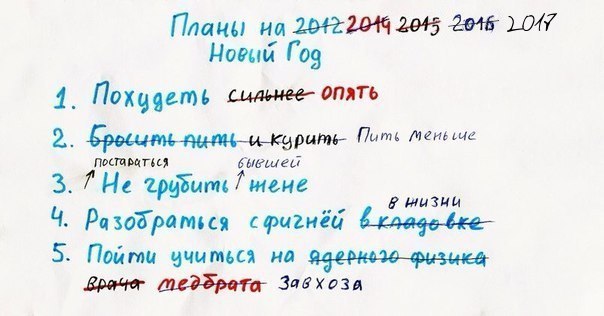 Планы на 2012 2014 2015 2016 2017
Новый Год
1. Похудеть сильнее опять
2. Бросить пить и курить Пить меньше
постараться бывшей
3. Не грубить жене
в жизни
4. Разобраться с фигнёй в кладовке
5. Пойти учиться на ядерного физика
врача медбрата Завхоза